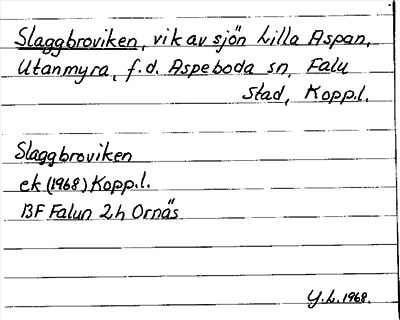 Slaggbroviken, vik av sjön Lilla Aspan,
Utanmyra, f.d. Aspeboda sn, Falu
Stad, Kopp.l.
Slaggbroviken
ek (1968) Kopp.l.
BF Falun 2h Ornäs
Y.L. 1968.